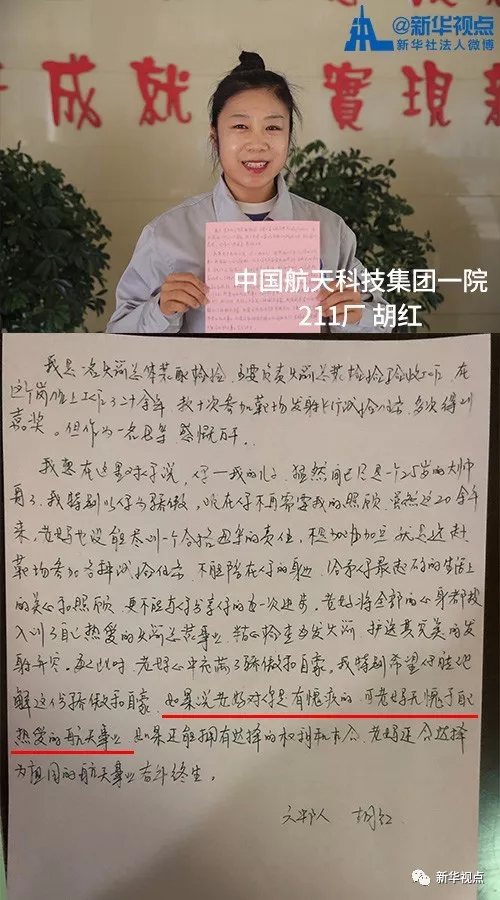 @新华视点
新华社法人微博
成就 實現新
中国航天科技集团一院
211厂 胡红
我是一名火箭总体装配检验，主要负责火箭总装检验验收工作，在
这个岗位上工作了二十余年，数十次参加靶场发射飞行试验任务，多次得到
嘉奖。但作为一名母亲感慨万千。
我想在这里对儿子说，仔—我的儿子，猛然间已是一个25岁的大帅
哥了，我特别以仔为骄傲，现在仔不再需要我的照顾，虽然这20余年
来，老妈也没能尽到一个合格母亲的责任，不是加班加点就是远赴
靶场参加各种试验任务，不能陪在仔的身边，给予仔最起码的生活上
的关心和照顾，更不能与仔分享仔的每一次进步。老妈将全部的心身都投
入到了自己热爱的火箭总装事业，精心检查每发火箭，护送其完美的发
射升空。每此时，老妈心中充满了骄傲和自豪。我特别希望仔能理
解这份骄傲和自豪，如果说老妈对你是有愧疚的，可老妈无愧于自己
热爱的航天事业，如果还能拥有选择的权利和机会，老妈还会选择
为祖国的航天事业奋斗终生。
六郎人 胡红
新华视点